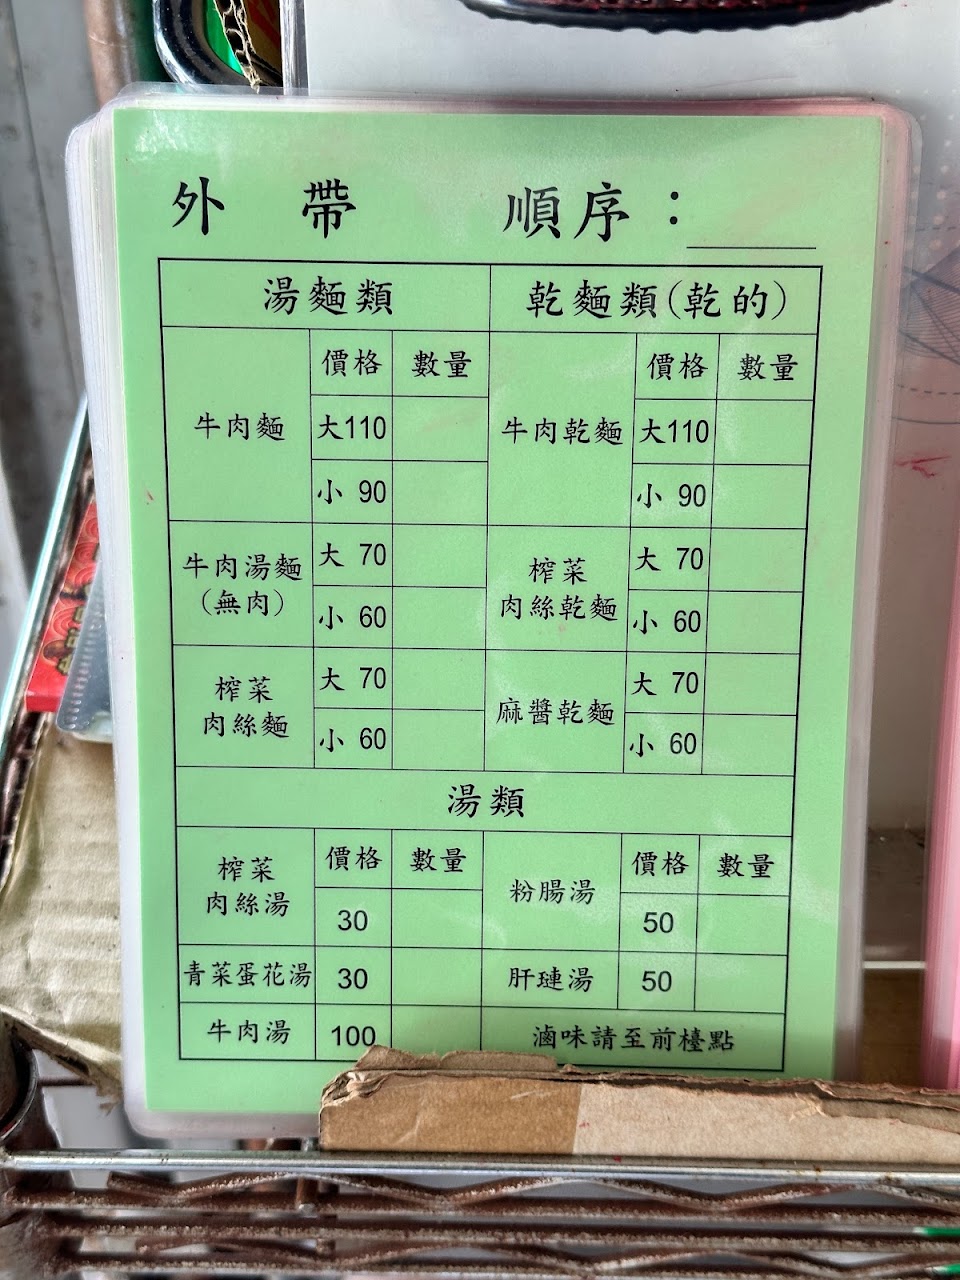 外帶 順序：
湯麵類 乾麵類(乾的)
價格 數量 價格 數量
牛肉麵 大110 牛肉乾麵 大110
小 90 小 90
牛肉湯麵 大 70 榨菜 大 70
(無肉) 小 60 肉絲乾麵 小 60
榨菜 大 70 麻醬乾麵 大 70
肉絲麵 小 60 小 60
湯類
榨菜 價格 數量 粉腸湯 價格 數量
肉絲湯 30 50
青菜蛋花湯 30 肝璉湯 50
牛肉湯 100 滷味請至前檯點